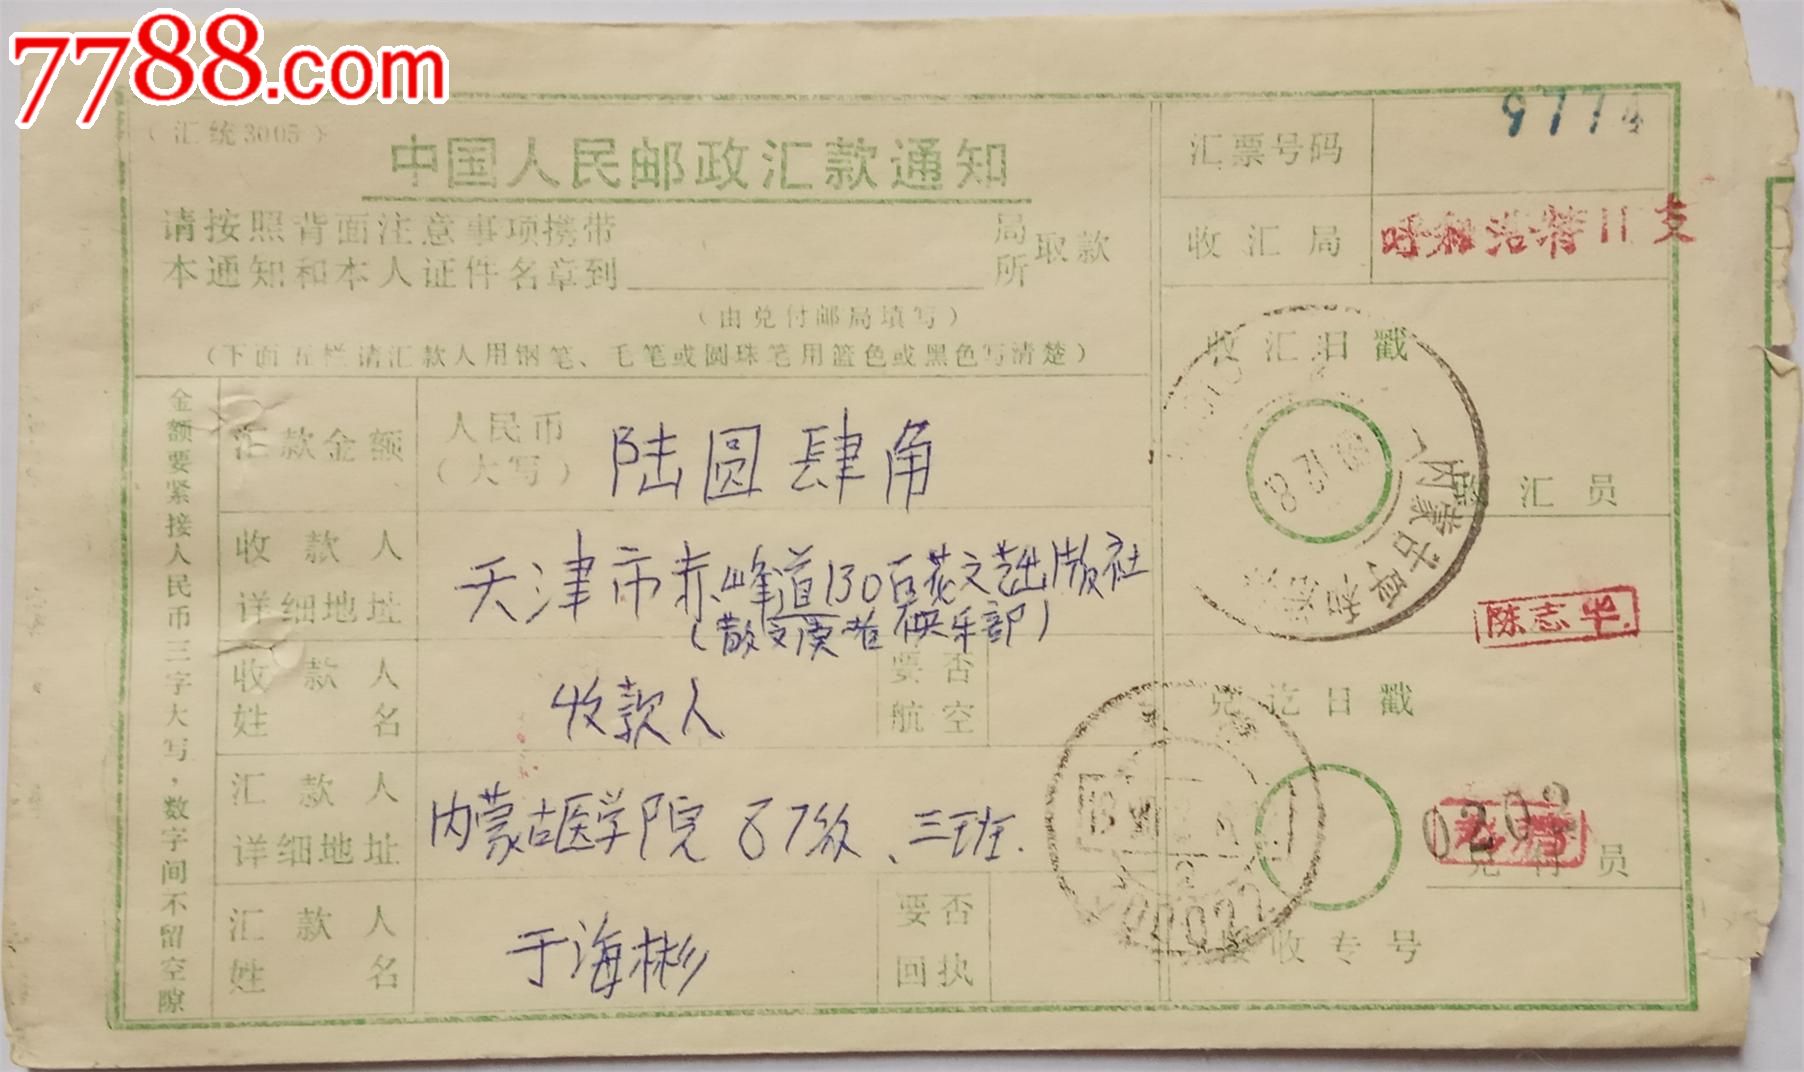 7788.com
(汇统3005)
中国人民邮政汇款通知
请按照背面注意事项携带
本通知和本人证件名章到
局
所
取款
(由兑付邮局填写)
(下面五栏请汇款人用钢笔、毛笔或圆珠笔用蓝色或黑色写清楚)
金额要紧接人民币三字大写,数字间不留空隙
汇款金额
人民币
(大写)
陆圆肆角
收款人
详细地址
天津市赤峰道130百花文艺出版社
(散文读者俱乐部)
收款人
姓名
收款人
要否
航空
汇款人
详细地址
内蒙古医学院 87级、三班.
汇款人
姓名
于海彬
要否
回执
汇票号码
收汇局
呼和浩特11支
收汇日戳
内蒙古呼和浩特
汇员
陈志华
兑讫日戳
0203
兑付员
接收专号